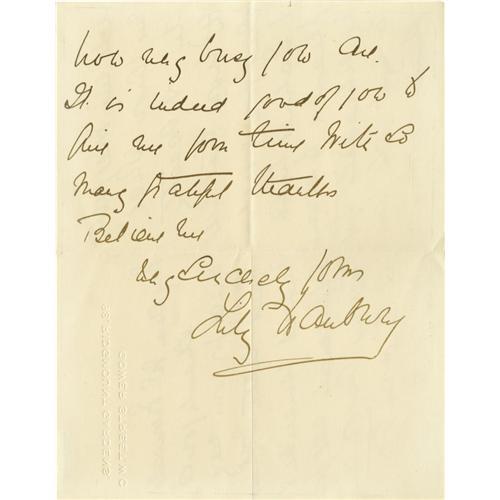 how very busy you are.
It is indeed good of you to
give me your time With so
many grateful thanks
Believe me
Very Sincerely yours
Lily Hanbury
RIDGMOUNT GARDENS
GOWER STREET W C